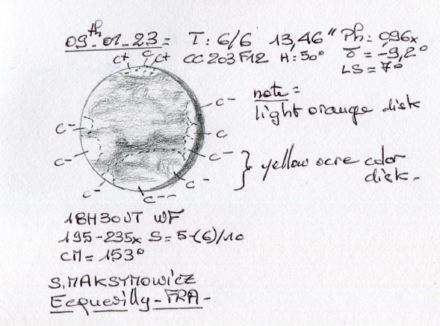 09th-01-23= T: 6/6 13,46" Ph: 096x
C+ C C+ CC 203 F12 H: 50° = -9,2°
LS = 7°
note =
light orange disk
C-
C-
C-
C-
C
C--
C-
C--
C--
yellow ocre color
disk-
18H30UT WF
195-235x S=5-(6)/10
CM=153°
S.MAKSYMOWicz
Ecquevilly-FRA-